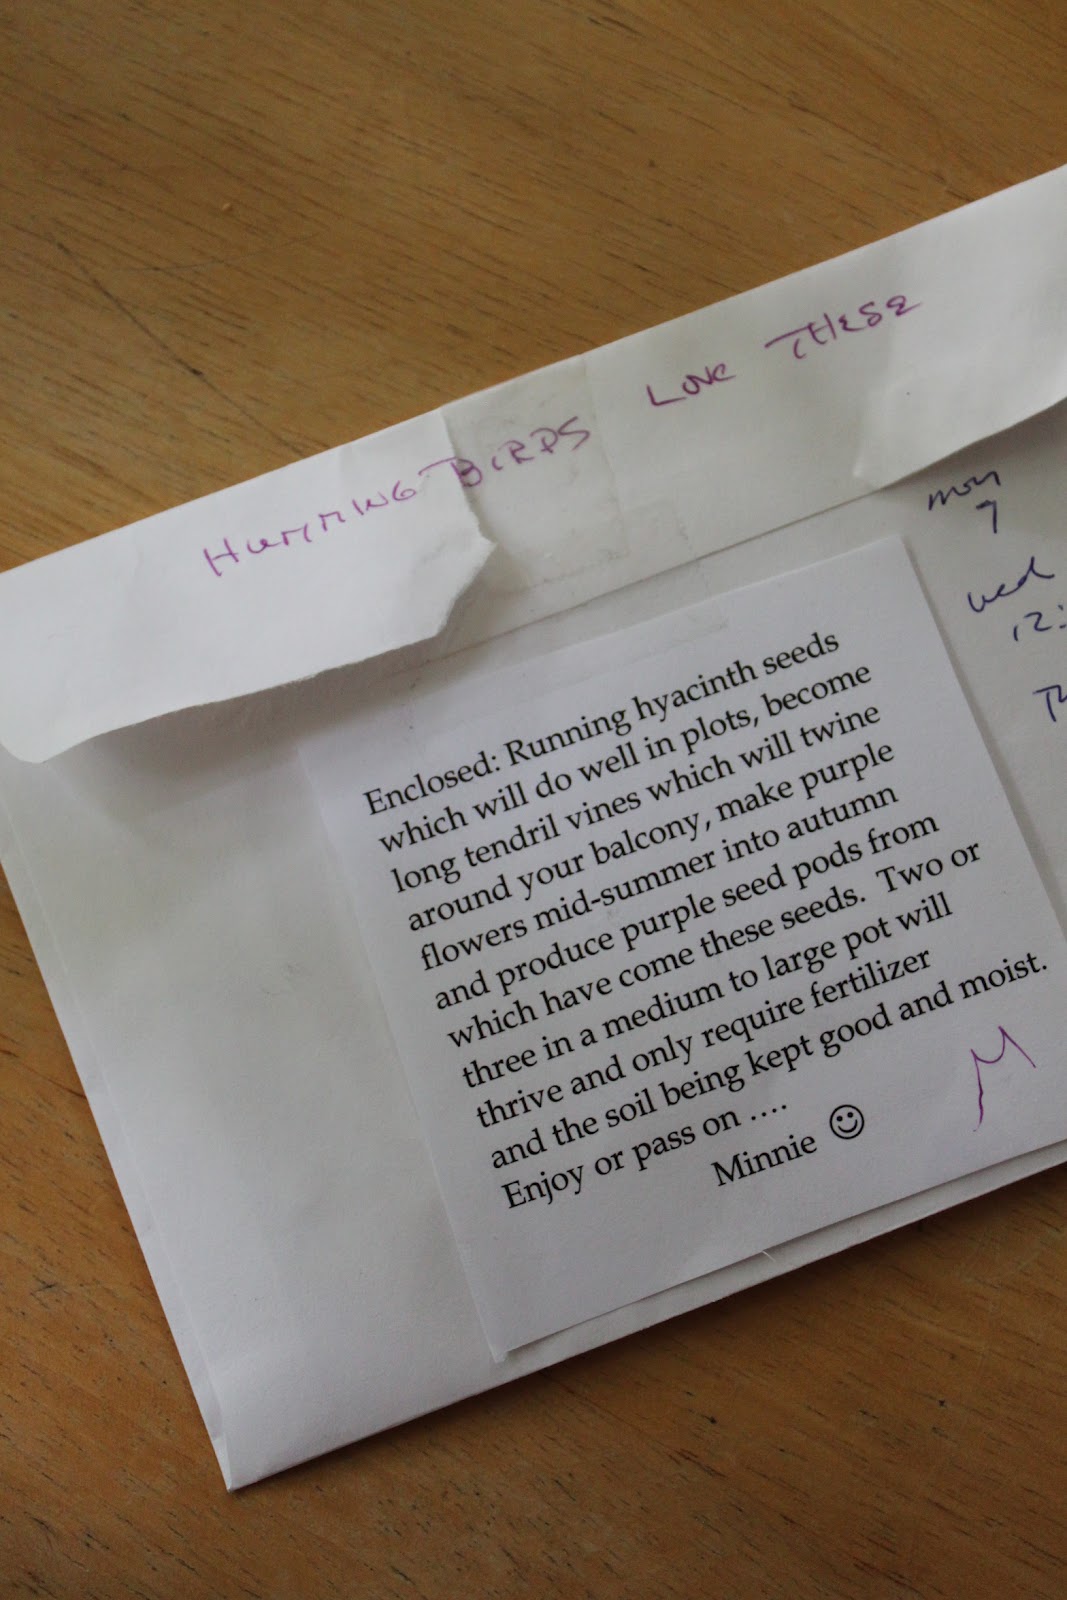 HUMMINGBIRDS LOVE THESE
Mon
7
Wed
12:
Enclosed: Running hyacinth seeds
which will do well in plots, become
long tendril vines which will twine
around your balcony, make purple
flowers mid-summer into autumn
and produce purple seed pods from
which have come these seeds. Two or
three in a medium to large pot will
thrive and only require fertilizer
and the soil being kept good and moist.
Enjoy or pass on ....
Minnie ☺
M